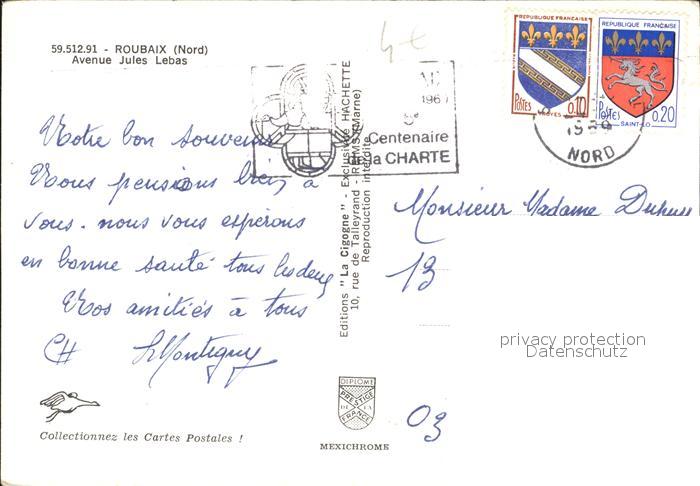 59.512.91 - ROUBAIX (Nord)
Avenue Jules Lebas
4€
Notre bon souvenir
Nous pensions bien à
vous. nous vous espérons
en bonne santé tous les deux
Nos amitiés à tous
CH Montigny
Collectionnez les Cartes Postales !
Editions "La Cigogne" - Exclusivité HACHETTE
10, rue de Talleyrand - REIMS (Marne)
Reproduction interdite
DIPLOME
PRESTIGE
DE LA
FRANCE
MEXICHROME
196
9e
Centenaire
la CHARTE
REPUBLIQUE FRANÇAISE
POSTES
0,10
TROYES
REPUBLIQUE FRANÇAISE
POSTES
0,20
SAINT-LO
1969
NORD
Monsieur Madame
13
03
privacy protection
Datenschutz